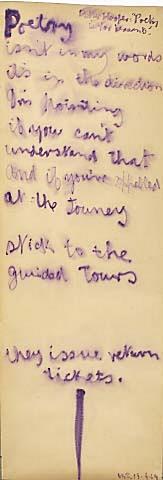 Poetry
isn't in my words
it's in the direction
I'm pointing
if you can't
understand that
and if you're appalled
at the Journey
stick to the
guided Tours
they issue return
tickets.